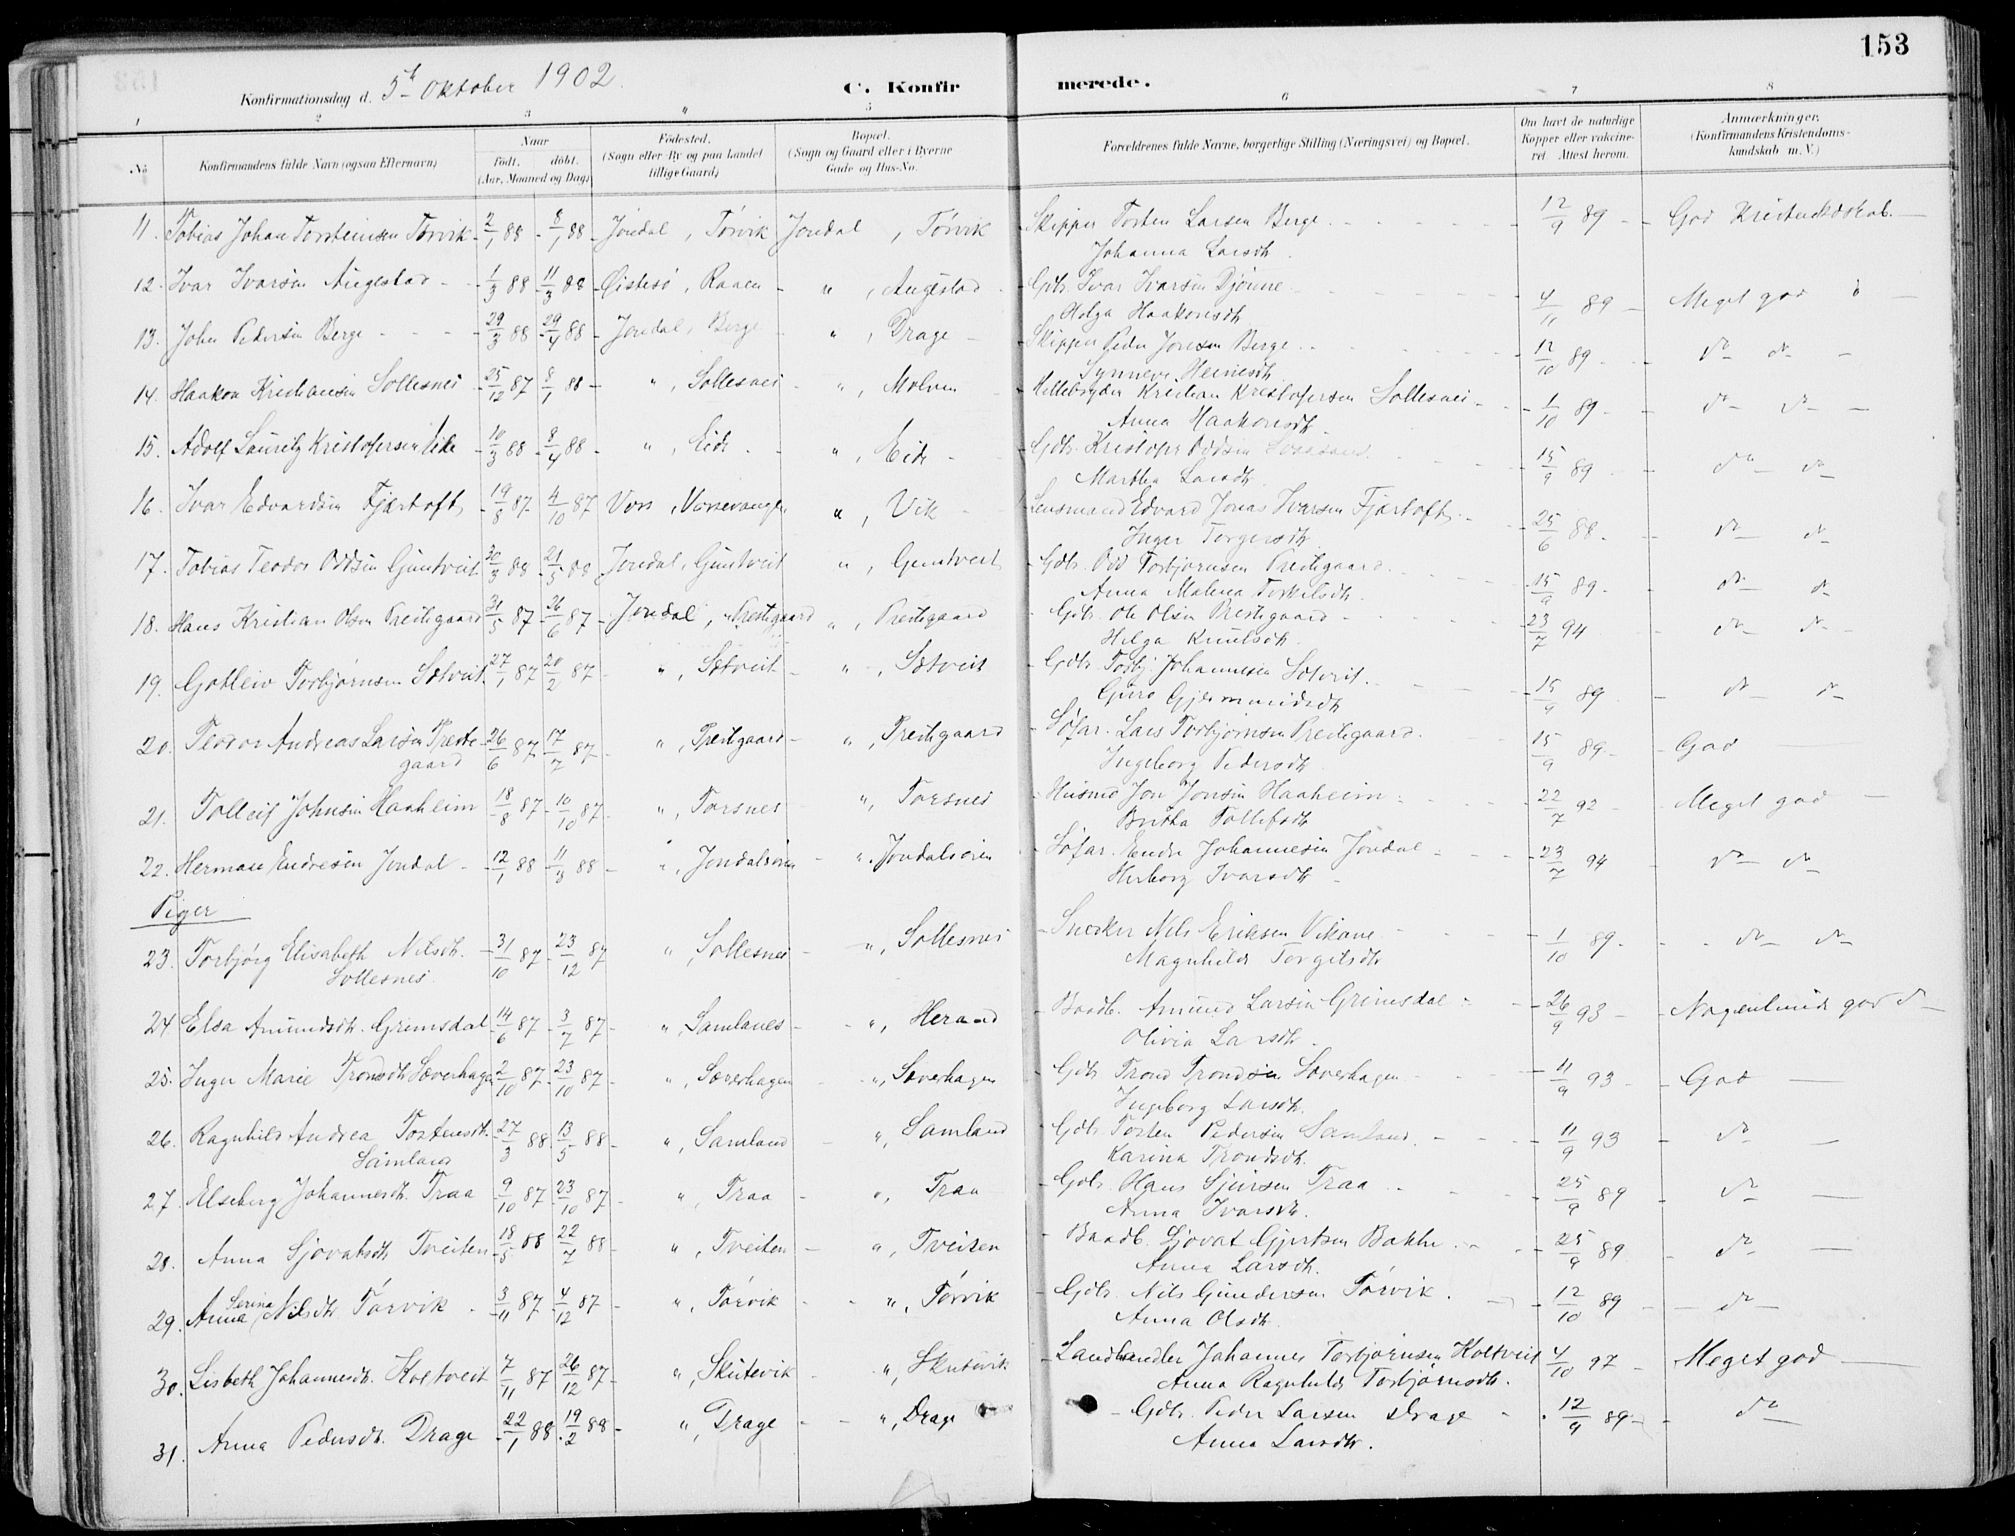 153
Konfirmationsdag d. 5te Oktober 1902.
C. Konfirmerede.
1 2 3 4 5 6 7 8
No
Konfirmandens fulde Navn (ogsaa Efternavn)
Naar
født. døbt.
(Aar, Maaned og Dag)
Fødested.
(Sogn eller By og paa Landet tillige Gaard)
Bopæl.
(Sogn og Gaard eller i Byerne Gade og Hus-No.
Forældrenes fulde Navne, borgerlige Stilling (Næringsvei) og Bopæl.
Om havt de naturlige Kopper eller vakcineret Attest herom.
Anmærkninger.
(Konfirmandens Kristendomskundskab m. V.)
11. Tobias Johan Torsteinsen Tørvik 2/1 88 8/1 88 Jondal, Tørvik Jondal, Tørvik Skipper Torsten Larsen Berge 12/9 89 God Kristendskab.
Johanna Larsdtr.
12. Ivar Ivarsen Augestad 1/3 88 11/3 88 Østesø, Raaen " , Augestad Gdbr. Ivar Ivarsen Djønne 4/11 89 Meget god "
Helga Haakonsdtr
13. John Pedersen Berge 29/3 88 29/4 88 Jondal, Berge " , Drage Skipper Peder Jonsen Berge 12/10 89 do do
Synneve Heinesdtr
14. Haakon Kristiansen Sollesnes 25/12 87 8/1 88 " , Sollesnes " , Molven Kristian Kristofersen Sollesnes 1/10 89 do do
Anna Haakonsdtr
15. Adolf Lauritz Kristofersen Eide 10/3 88 8/4 88 " , Eide " , Eide Gdbr. Kristofer Oddsen 15/9 89 do do
Martha Larsdtr.
16. Ivar Edvardsen Fjærtoft 19/8 87 4/10 87 Voss, Vossevangen " , Vik Lensmand Edvard Jonas Ivarsen Fjærtoft 25/6 88 do do
Inger Torgersdtr
17. Tobias Teodor Oddsen Guntveit 30/3 88 21/5 88 Jondal, Guntveit " , Guntveit Gdbr. Odd Torbjørnsen Prestegaard 15/9 89 do do
Anna Malena Torkilsdtr
18. Hans Kristian Olsen Prestegaard 31/5 87 26/6 87 Jondal, Prestegaard " , Prestegaard Gdbr. Ole Olsen Prestegaard 23/7 94 do do
Helga Knutsdtr.
19. Gotleiv Torbjørnsen Sætveit 27/1 87 20/2 87 " , Sætveit " , Sætveit Gdbr. Torbj. Johannesen Sætveit 15/9 89 do do
Guro Gjermundsdtr
20. Teodor Andreas Larsen Prestegaard 26/6 87 17/7 87 " , Prestgaard " , Prestegaard Søfar. Lars Torbjørnsen Prestegaard 15/9 89 God
Ingeborg Pedersdtr
21. Tolleif Johnsen Haaheim 18/8 87 10/10 87 " , Torsnes " , Torsnes Husmd Jon Jonsen Haaheim 22/7 92 Meget god
Britha Tollefsdtr
22. Herman Endresen Jondal 12/1 88 11/3 88 " , Jondalsøren " , Jondalsøren Søfar. Endre Johannesen Jondal 23/7 94 do do
Herborg Ivarsdtr
Piger
23. Torbjørg Elisabeth Nilsdtr. Sollesnes 31/10 87 23/12 87 " , Sollesnes " , Sollesnes Snedker Nils Eriksen Vikane 1/10 89 do do
Magnhild Torgilsdtr
24 Elsa Amundsdtr. Grimsdal 14/6 87 3/7 87 " , Samlanes " , Herand Baadb. Amund Larsen Grimsdal 26/9 93 Nogenlunde god do
Olivia Larsdtr.
25. Inger Marie Trondsdtr Sæverhagen 2/10 87 23/10 87 " , Sæverhagen " , Sæverhagen Gdbr Trond Trondsen Sæverhagen 11/9 93 God
Ingeborg Larsdtr.
26. Ragnhild Andrea Torstensdtr. Samland 27/3 88 13/5 88 " , Samland " , Samland Gdbr. Torsten Pedersen Samland 11/9 93 do
Karina Trondsdtr.
27. Elseberg Johannesdtr. Traa 9/10 87 23/10 87 " , Traa " , Traa Gdbr. Hans Sjursen Traa 25/9 89 do
Anna Ivarsdtr.
28. Anna Sjovatsdtr Tveiten 18/5 88 22/7 88 " , Tveiten " , Tveiten Baadb. Sjovat Gjertsen Bakke 25/9 89 do
Anna Larsdtr.
29. Anna Serina Nilsdtr. Tørvik 3/11 87 4/12 87 " , Tørvik " , Tørvik Gdbr. Nils Gundersen Tørvik 12/10 89 do
Anna Olsdtr.
30. Lisbeth Johannesdtr. Koltveit 7/11 87 26/12 87 " , Skutevik " , Skutevik Landhandler Johannes Torbjørnsen Koltveit 4/10 97 Meget god
Anna Ragnhild Torbjørnsdtr.
31. Anna Pedersdtr. Drage 22/1 88 19/2 88 " , Drage " , Drage Gdbr. Peder Larsen Drage 12/9 89 do
Anna Larsdtr.